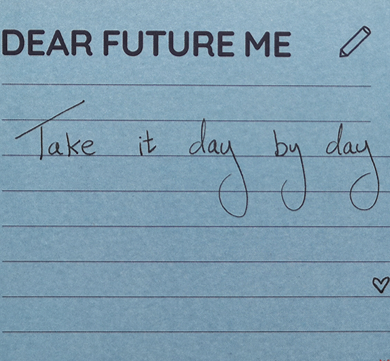 DEAR FUTURE ME
Take it day by day